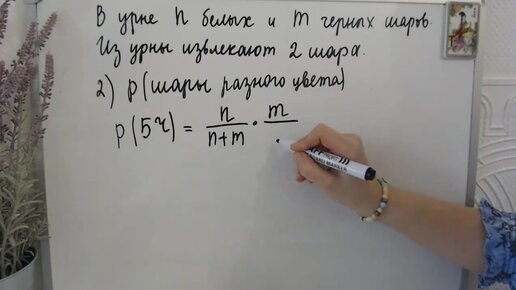 В урне n белых и m черных шаров.
Из урны извлекают 2 шара.
2) p(шары разного цвета)
p(БЧ) = n/n+m · m/